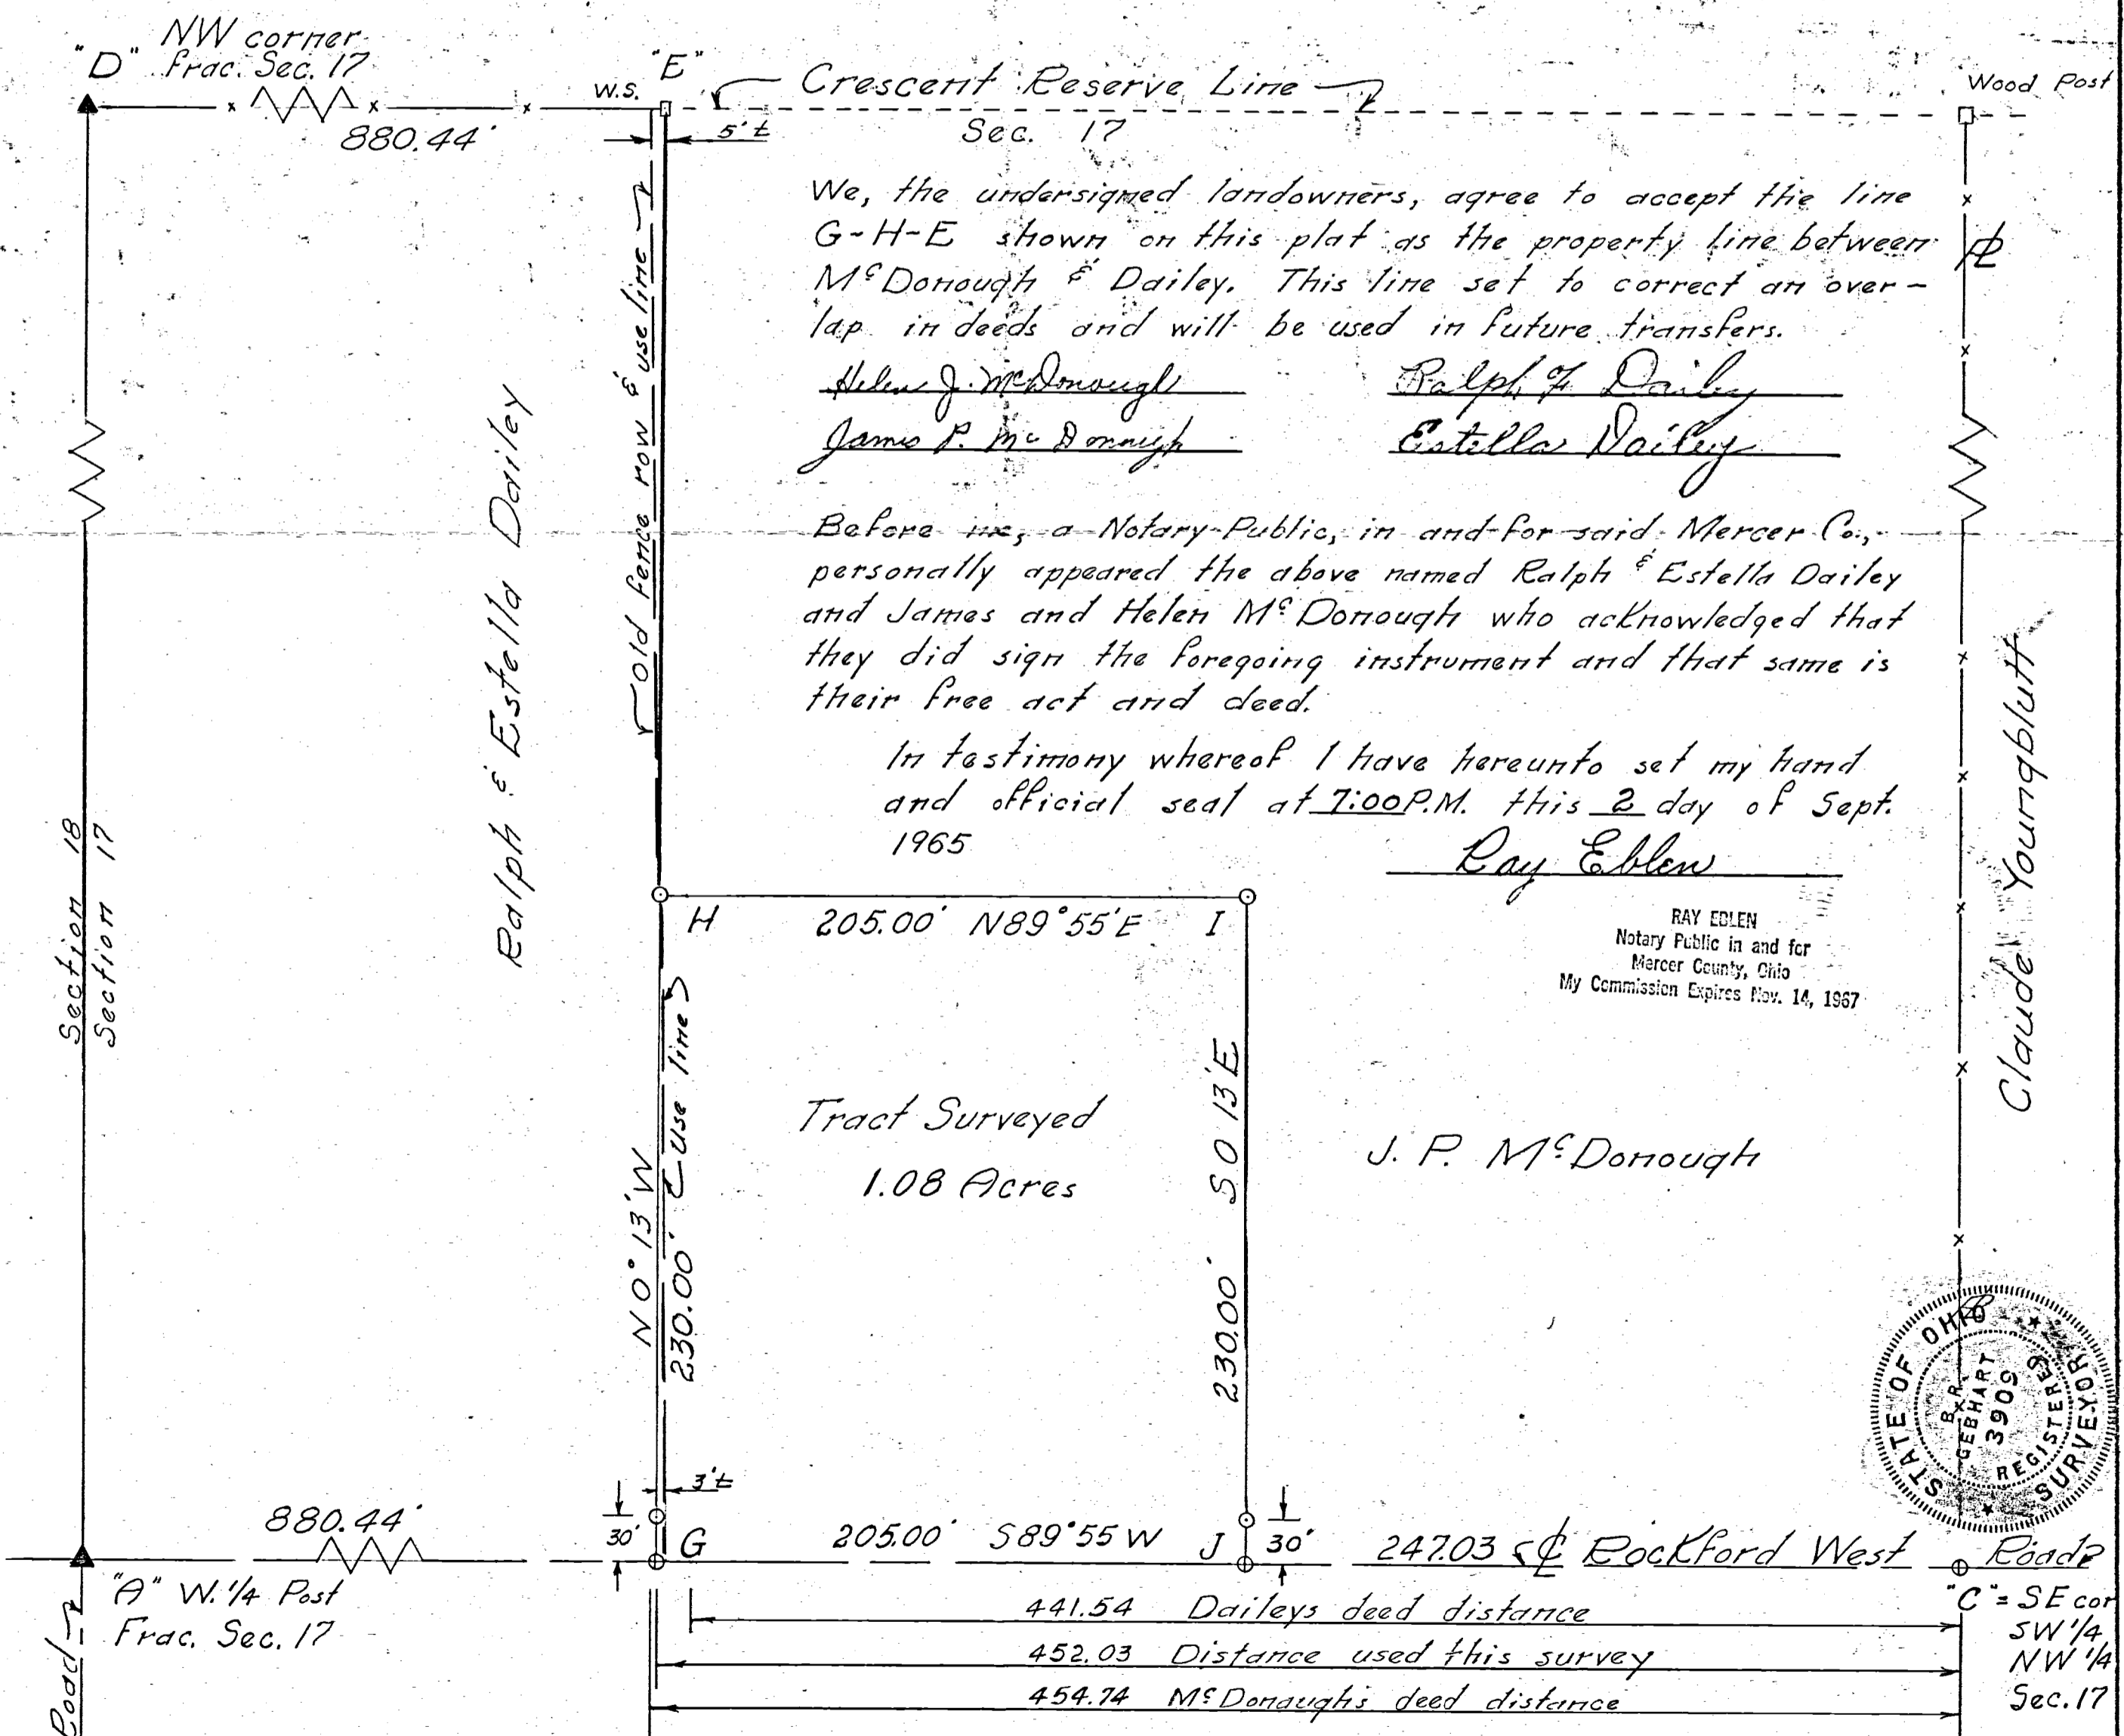 NW corner
"D" Frac. Sec. 17
W.S.
"E"
Crescent Reserve Line
Wood Post
880.44'
5'±
Sec. 17
We, the undersigned landowners, agree to accept the line
G-H-E shown on this plat as the property line between
McDonough & Dailey. This line set to correct an over-
lap in deeds and will be used in future transfers.
Helen J. McDonough
Ralph F Dailey
James P. McDonough
Estella Dailey
Before me, a Notary Public, in and for said Mercer Co.,
personally appeared the above named Ralph & Estella Dailey
and James and Helen McDonough who acknowledged that
they did sign the foregoing instrument and that same is
their free act and deed.
In testimony whereof I have hereunto set my hand
and official seal at 7:00 P.M. this 2 day of Sept.
1965
Ray Eblen
RAY EBLEN
Notary Public in and for
Mercer County, Ohio
My Commission Expires Nov. 14, 1967
PL
Claude Youngblutt
Old fence row & use line
Ralph & Estella Dailey
Section 18
Section 17
H
205.00' N89°55'E
I
Use line
N0°13'W
230.00'
Tract Surveyed
1.08 Acres
S0 13'E
230.00'
J. P. McDonough
STATE OF OHIO
B.R.
GEBHART
3909
REGISTERED
SURVEYOR
3'±
880.44'
30'
G
205.00' S89°55W
J
30'
247.03
℄ Rockford West Road
"A" W. 1/4 Post
Frac. Sec. 17
Road
441.54 Daileys deed distance
452.03 Distance used this survey
454.74 McDonaughs deed distance
"C" = SE cor
SW 1/4
NW 1/4
Sec. 17